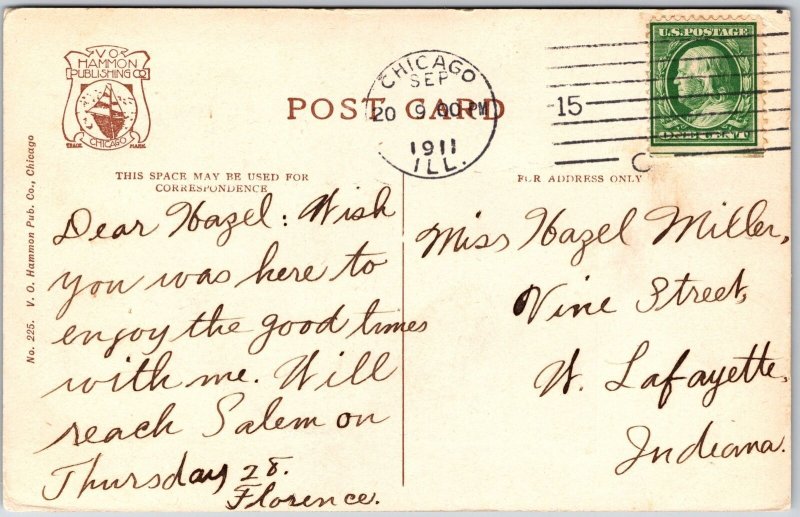 V.O.
HAMMON
PUBLISHING CO
CHICAGO
TRADE MARK
POST CARD
CHICAGO
SEP
20 9.00 PM
1911
ILL.
15
U.S. POSTAGE
ONE CENT
THIS SPACE MAY BE USED FOR
CORRESPONDENCE
FOR ADDRESS ONLY
No. 225. V. O. Hammon Pub. Co., Chicago
Dear Hazel: Wish
you was here to
enjoy the good times
with me. Will
reach Salem on
Thursday 28.
Florence.
Miss Hazel Miller,
Vine Street,
W. Lafayette,
Indiana.